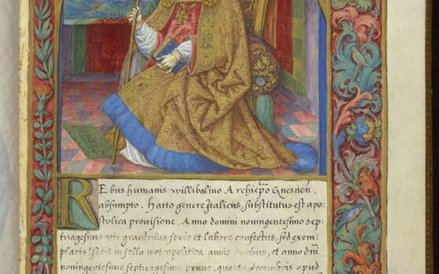 REbus humanis Willibalino Archiepo Gnesnen.
absumpto. Hatto genere Italicus, substitutus est apo
stolica provisione. Anno domini nonningentesimo sep
tuagesimo vir grandevus senio et labore confectus, sed exem
plaris sedit in sella metropolitica annis
nonningentesimo septuagesimo primo, quarta decembris apud